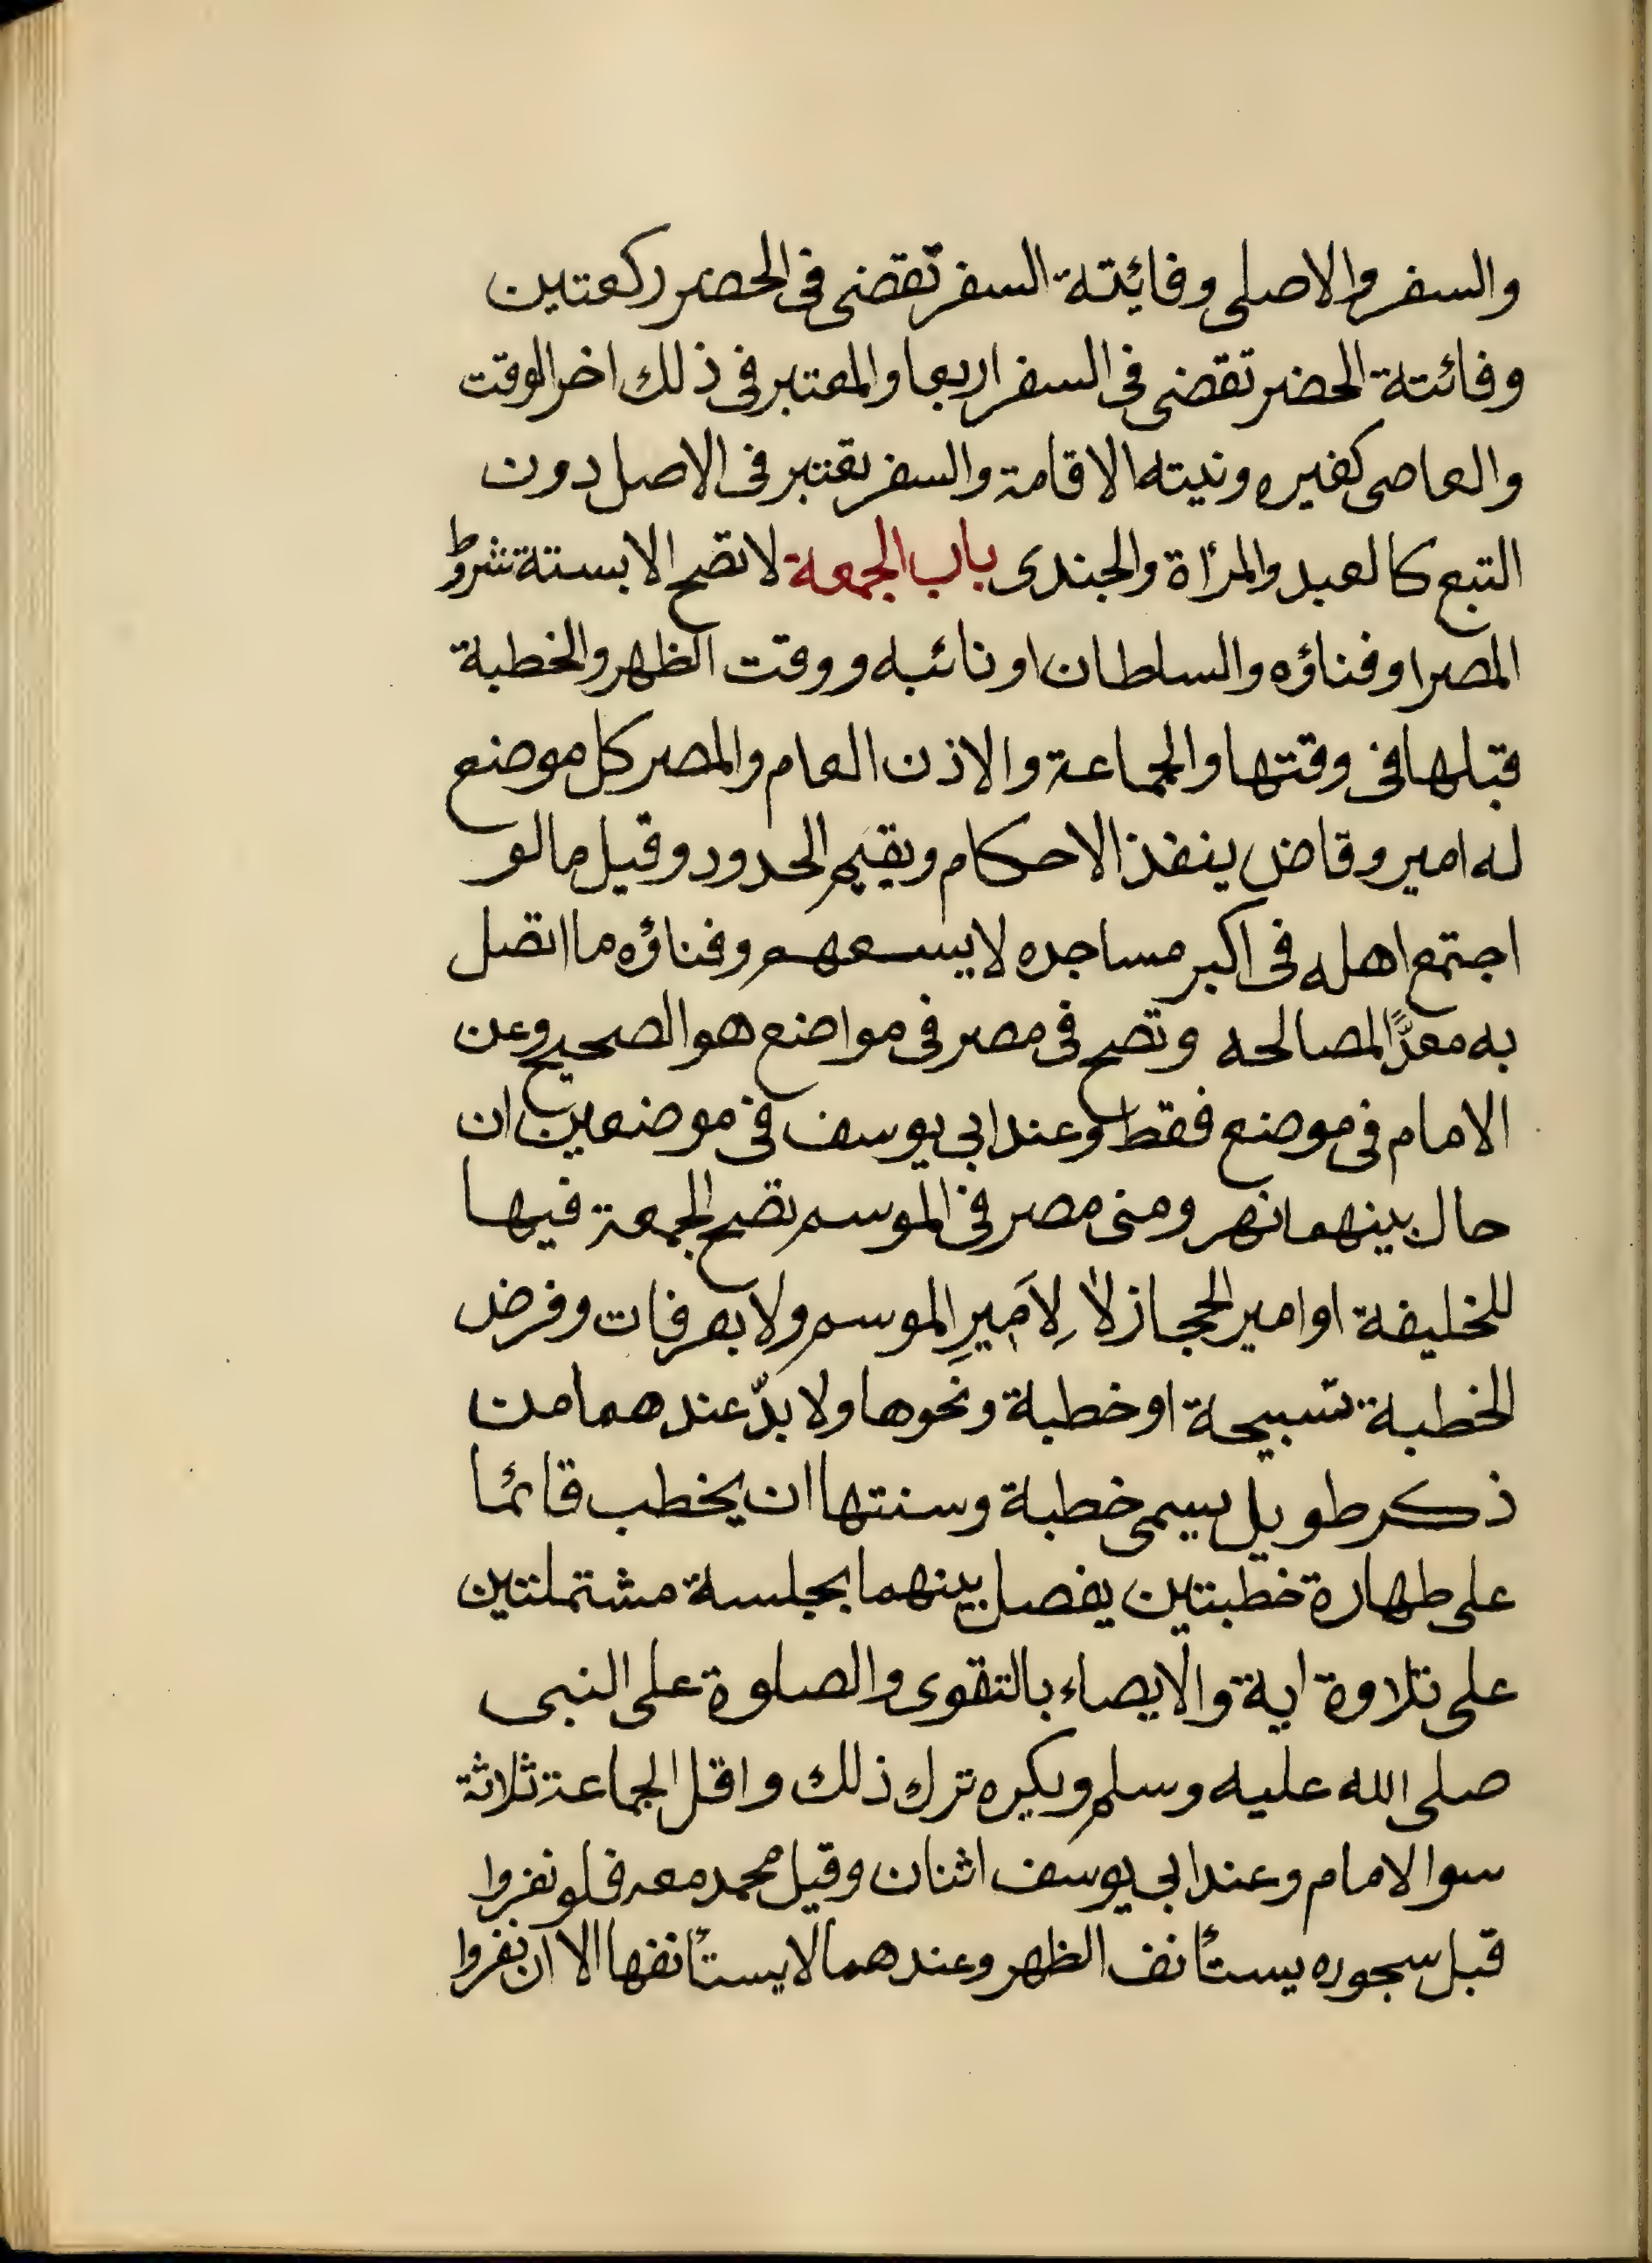 والسفر والاصلى وفائيتة السفر تقضى فى الحضر ركعتين
وفائتة الحضر تقضى فى السفر اربعا والمعتبر فى ذلك اخر الوقت
والعاصى كغيره ونيته الاقامة والسفر يعتبر فى الاصل دون
التبع كالعبد والمرأة والجندى باب الجمعة لا تصح الا بستة شروط
المصر او فناؤه والسلطان او نائبه ووقت الظهر والخطبة
قبلها فى وقتها والجماعة والاذن العام والمصر كل موضع
له امير وقاض ينفذ الاحكام ويقيم الحدود وقيل مالو
اجتمع اهله فى اكبر مساجده لا يسعهم وفناؤه ما اتصل
به معدًّا لمصالحه وتصح فى مصر فى مواضع هو الصحيح وعن
الامام فى موضع فقط وعند ابى يوسف فى موضعين ان
حال بينهما نهر ومنى مصر فى الموسم تصح الجمعة فيها
للخليفة او امير الحجاز لا لِاَمِيرِ الموسم ولا بعرفات وفرض
الخطبة تسبيحة او خطبة ونحوها ولا بدّ عندهما من
ذكر طويل يسمى خطبة وسنتها ان يخطب قائما
على طهارة خطبتين يفصل بينهما بجلسة مشتملتين
على تلاوة اية والايصاء بالتقوى والصلوة على النبى
صلى الله عليه وسلم ويكره ترك ذلك واقل الجماعة ثلاثة
سوا الامام وعند ابى يوسف اثنان وقيل محمد معه فلو نفروا
قبل سجوده يستأنف الظهر وعندهما لا يستأنفها الا ان نفروا